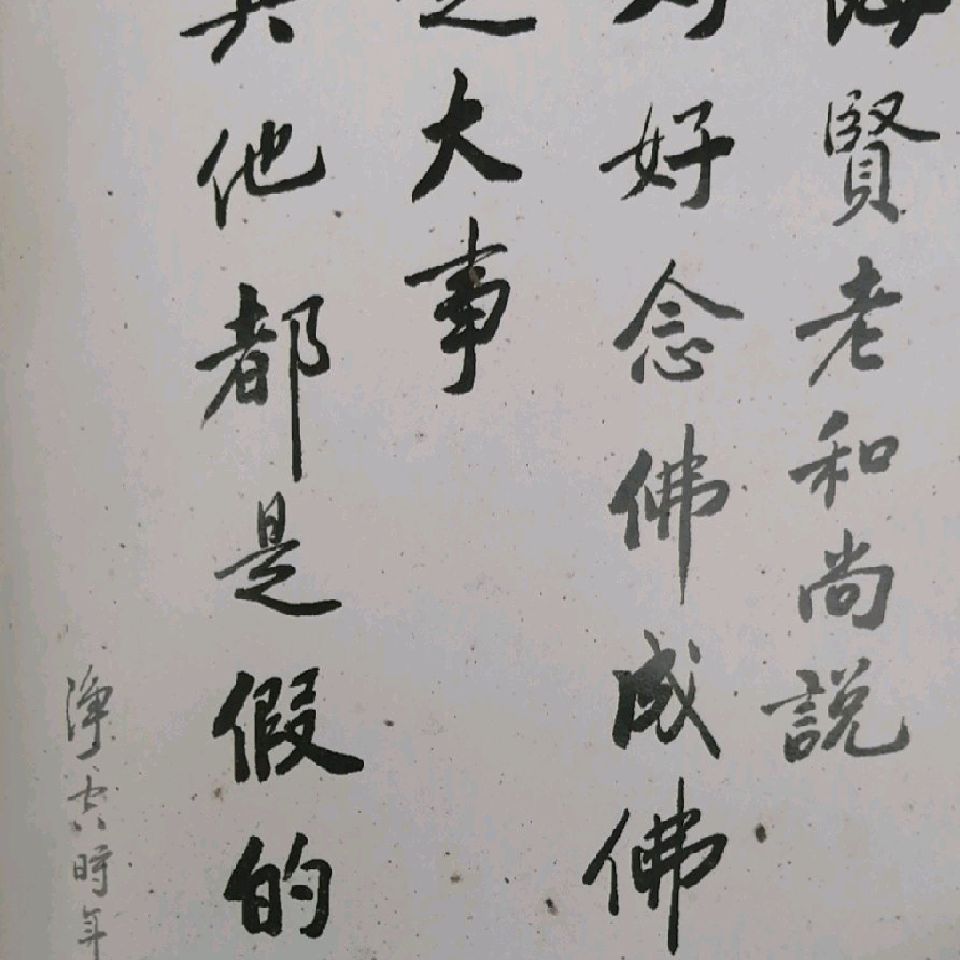 海賢老和尚說
好好念佛成佛
是大事
其他都是假的
淨空時年